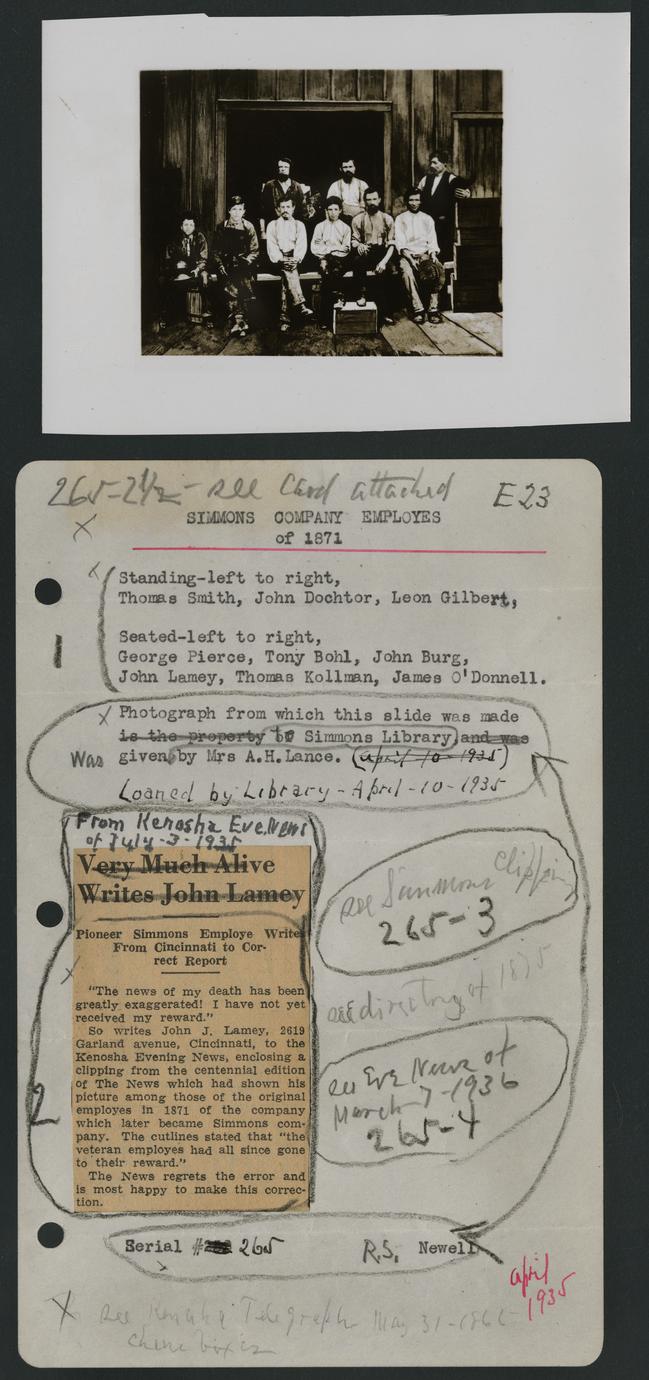 265-2½- see Card attached E23
SIMMONS COMPANY EMPLOYES
of 1871
Standing-left to right,
Thomas Smith, John Dochtor, Leon Gilbert,
1
Seated-left to right,
George Pierce, Tony Bohl, John Burg,
John Lamey, Thomas Kollman, James O'Donnell.
X Photograph from which this slide was made
is the property to Simmons Library, and was
Was given by Mrs A.H.Lance. (April 10-1935)
Loaned by Library-April-10-1935
From Kenosha Eve.News
of July-3-1935
Very Much Alive
Writes John Lamey
Pioneer Simmons Employe Writes
From Cincinnati to Cor-
rect Report
"The news of my death has been
greatly exaggerated! I have not yet
received my reward."
So writes John J. Lamey, 2619
Garland avenue, Cincinnati, to the
Kenosha Evening News, enclosing a
clipping from the centennial edition
of The News which had shown his
picture among those of the original
employes in 1871 of the company
which later became Simmons com-
pany. The cutlines stated that "the
veteran employes had all since gone
to their reward."
The News regrets the error and
is most happy to make this correc-
tion.
2
see Simmons Clipping
265-3
see directory of 1875
see Eve News of
March 7-1936
265-4
Serial # 265 R.S. Newell
April
1935
X see Kenosha Telegraph May 31-186
cheese boxes